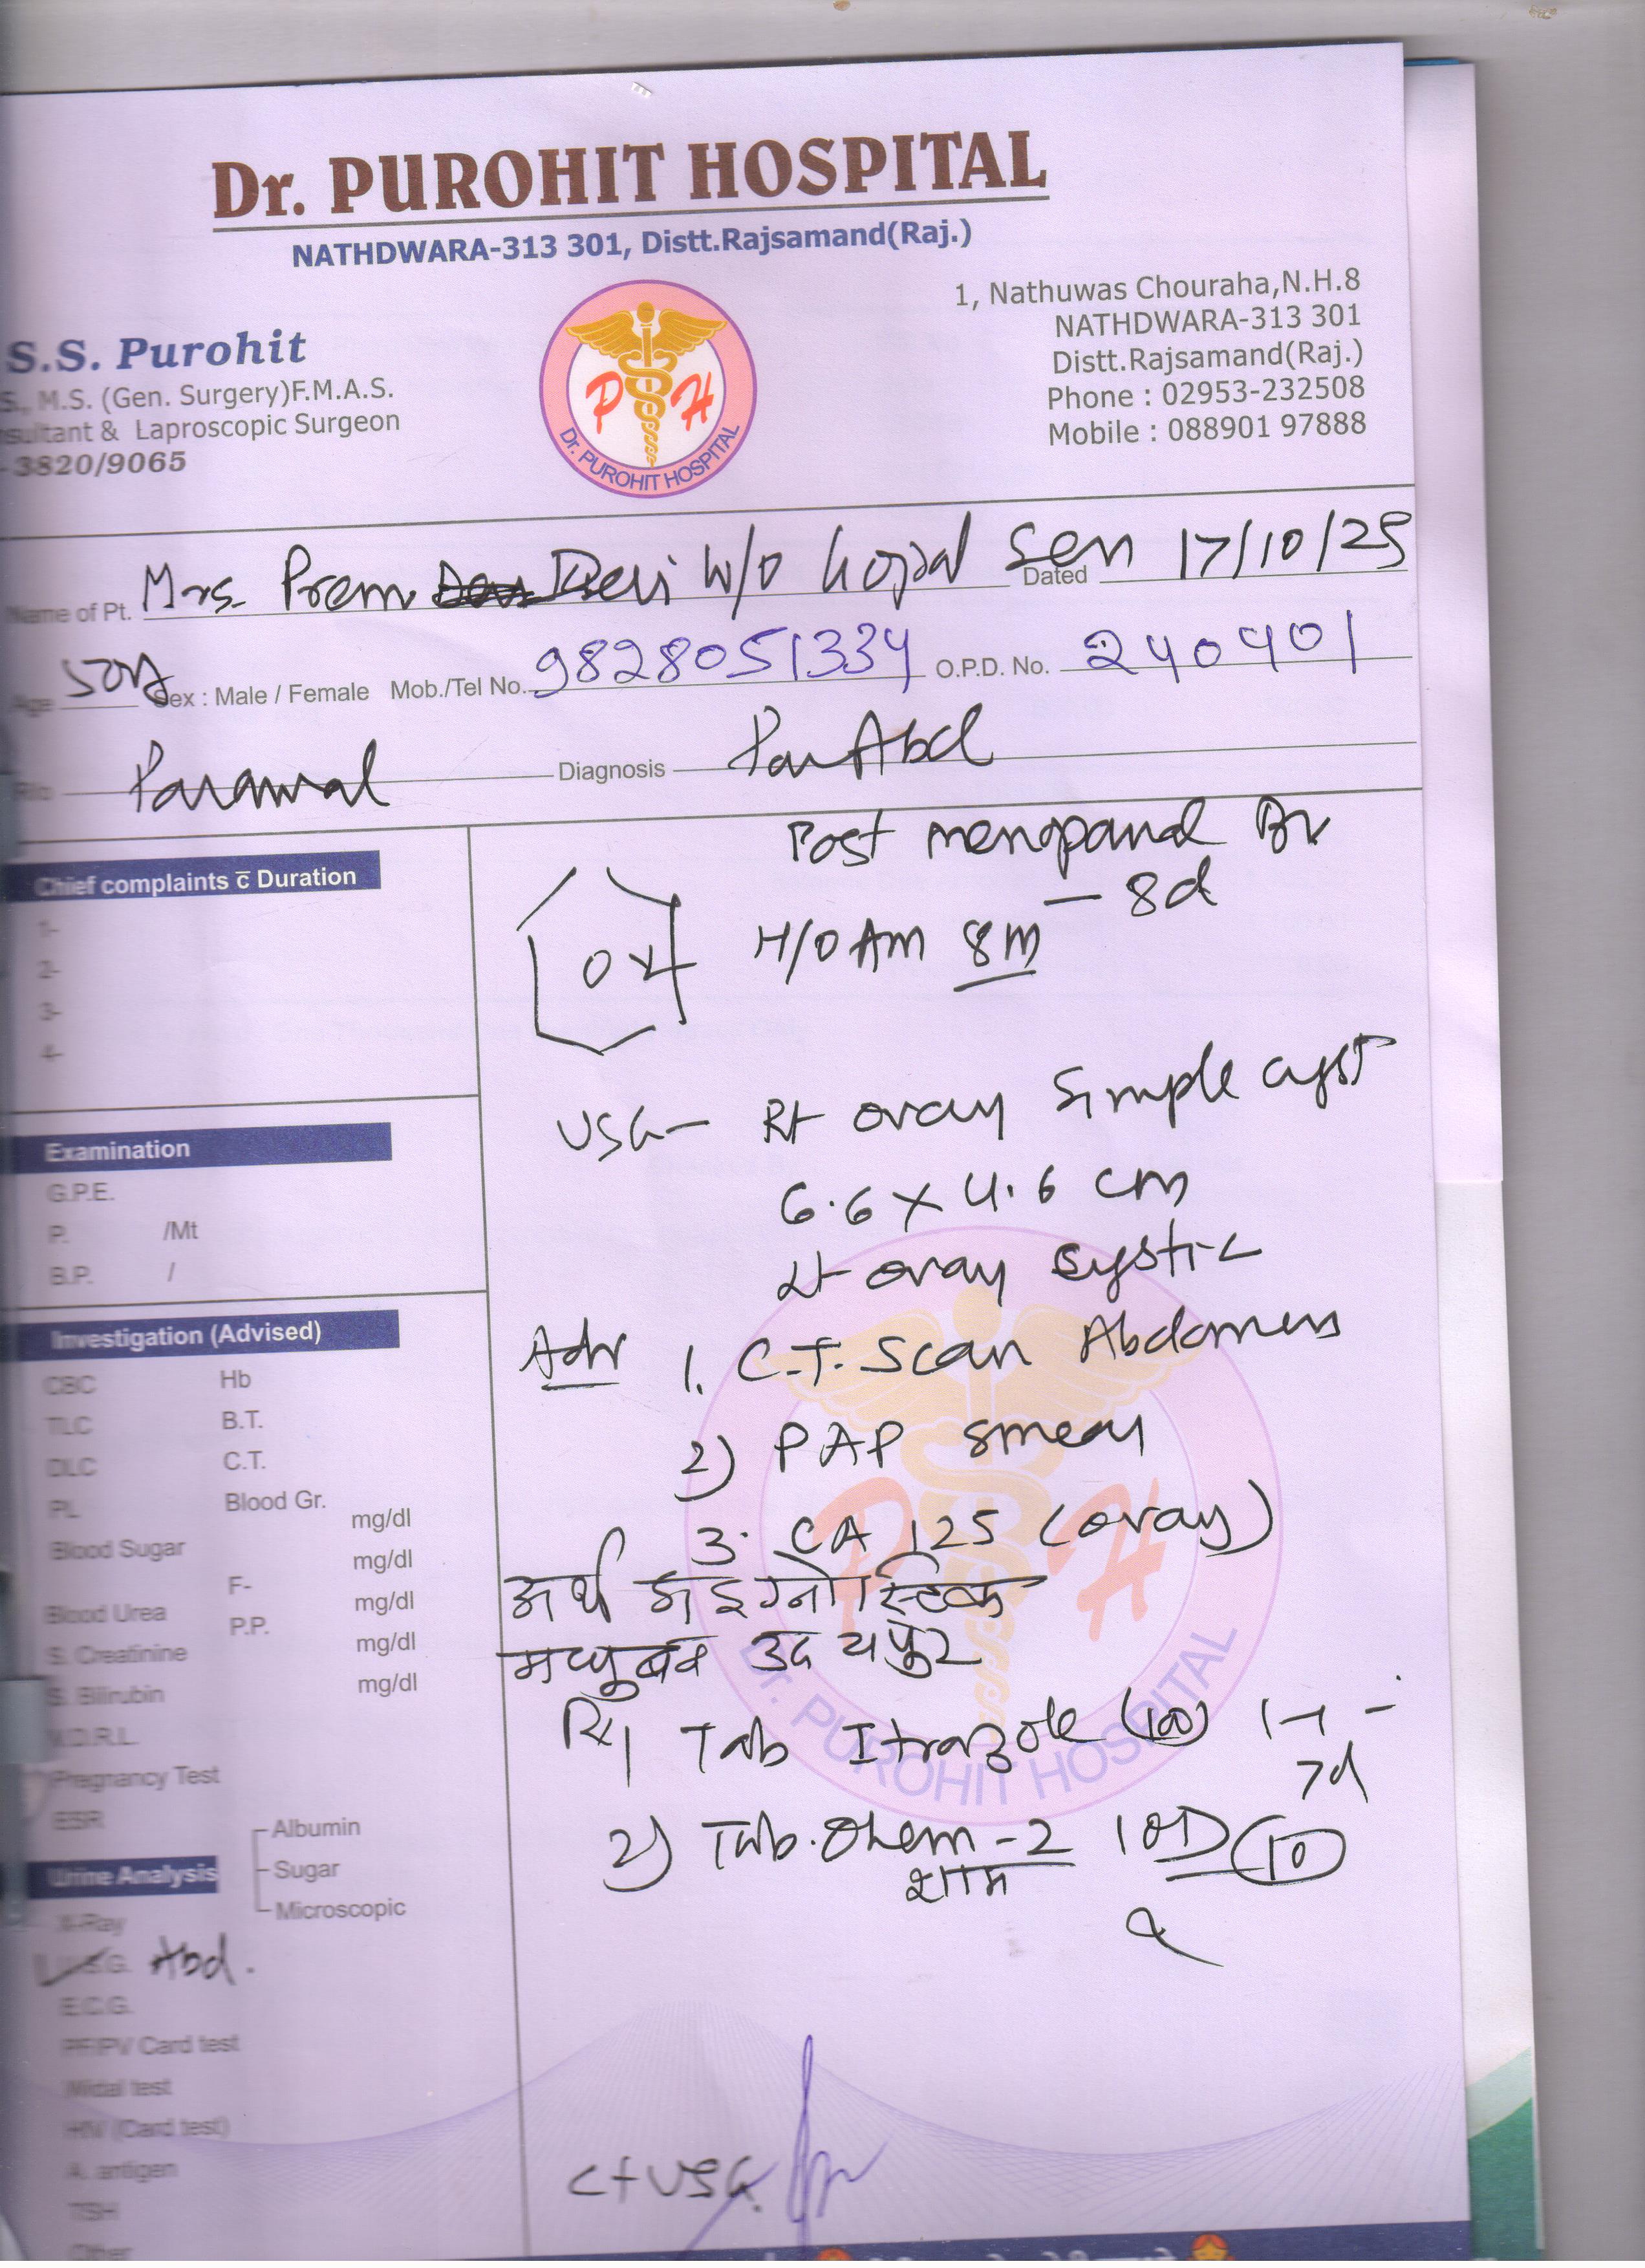 Dr. PUROHIT HOSPITAL
NATHDWARA-313 301, Distt.Rajsamand(Raj.)
S.S. Purohit
M.S. (Gen. Surgery)F.M.A.S.
& Laproscopic Surgeon
3820/9065
P H
Dr. PUROHIT HOSPITAL
1, Nathuwas Chouraha,N.H.8
NATHDWARA-313 301
Distt.Rajsamand(Raj.)
Phone : 02953-232508
Mobile : 088901 97888
Name of Pt. Mrs. Prem Devi W/O Gopal Sen Dated 17/10/25
Age 50y Sex : Male / Female Mob./Tel No. 9828051334 O.P.D. No. 240401
Parawal Diagnosis Pain Abd
Post menopausal
- 8d
H/O Am 8m
USG- Rt ovary simple cyst
6.6 x 4.6 cm
Lt ovary cystic
Adv 1. C.T. Scan Abdomen
2) PAP smear
3. CA 125 (ovary)
अर्थ डाइग्नोस्टिक
मधुबन उदयपुर
Tab Itrazole (100) 1-1 -
7d
2) Tab. Ohem-2 1 OD (10)
शाम
Chief complaints c̄ Duration
1-
2-
3-
4-
Examination
G.P.E.
P. /Mt
B.P. /
Investigation (Advised)
CBC Hb
TLC B.T.
DLC C.T.
PL Blood Gr.
mg/dl
Blood Sugar mg/dl
F- mg/dl
Blood Urea P.P. mg/dl
S. Creatinine mg/dl
S. Bilirubin
V.D.R.L.
Pregnancy Test
ESR
Urine Analysis Albumin
Sugar
Microscopic
X-Ray
U.S.G. Abd.
E.C.G.
PF/PV Card test
Midal test
HIV (Card test)
A. antigen
TSH
Other
USG.
P H
Dr. PUROHIT HOSPITAL